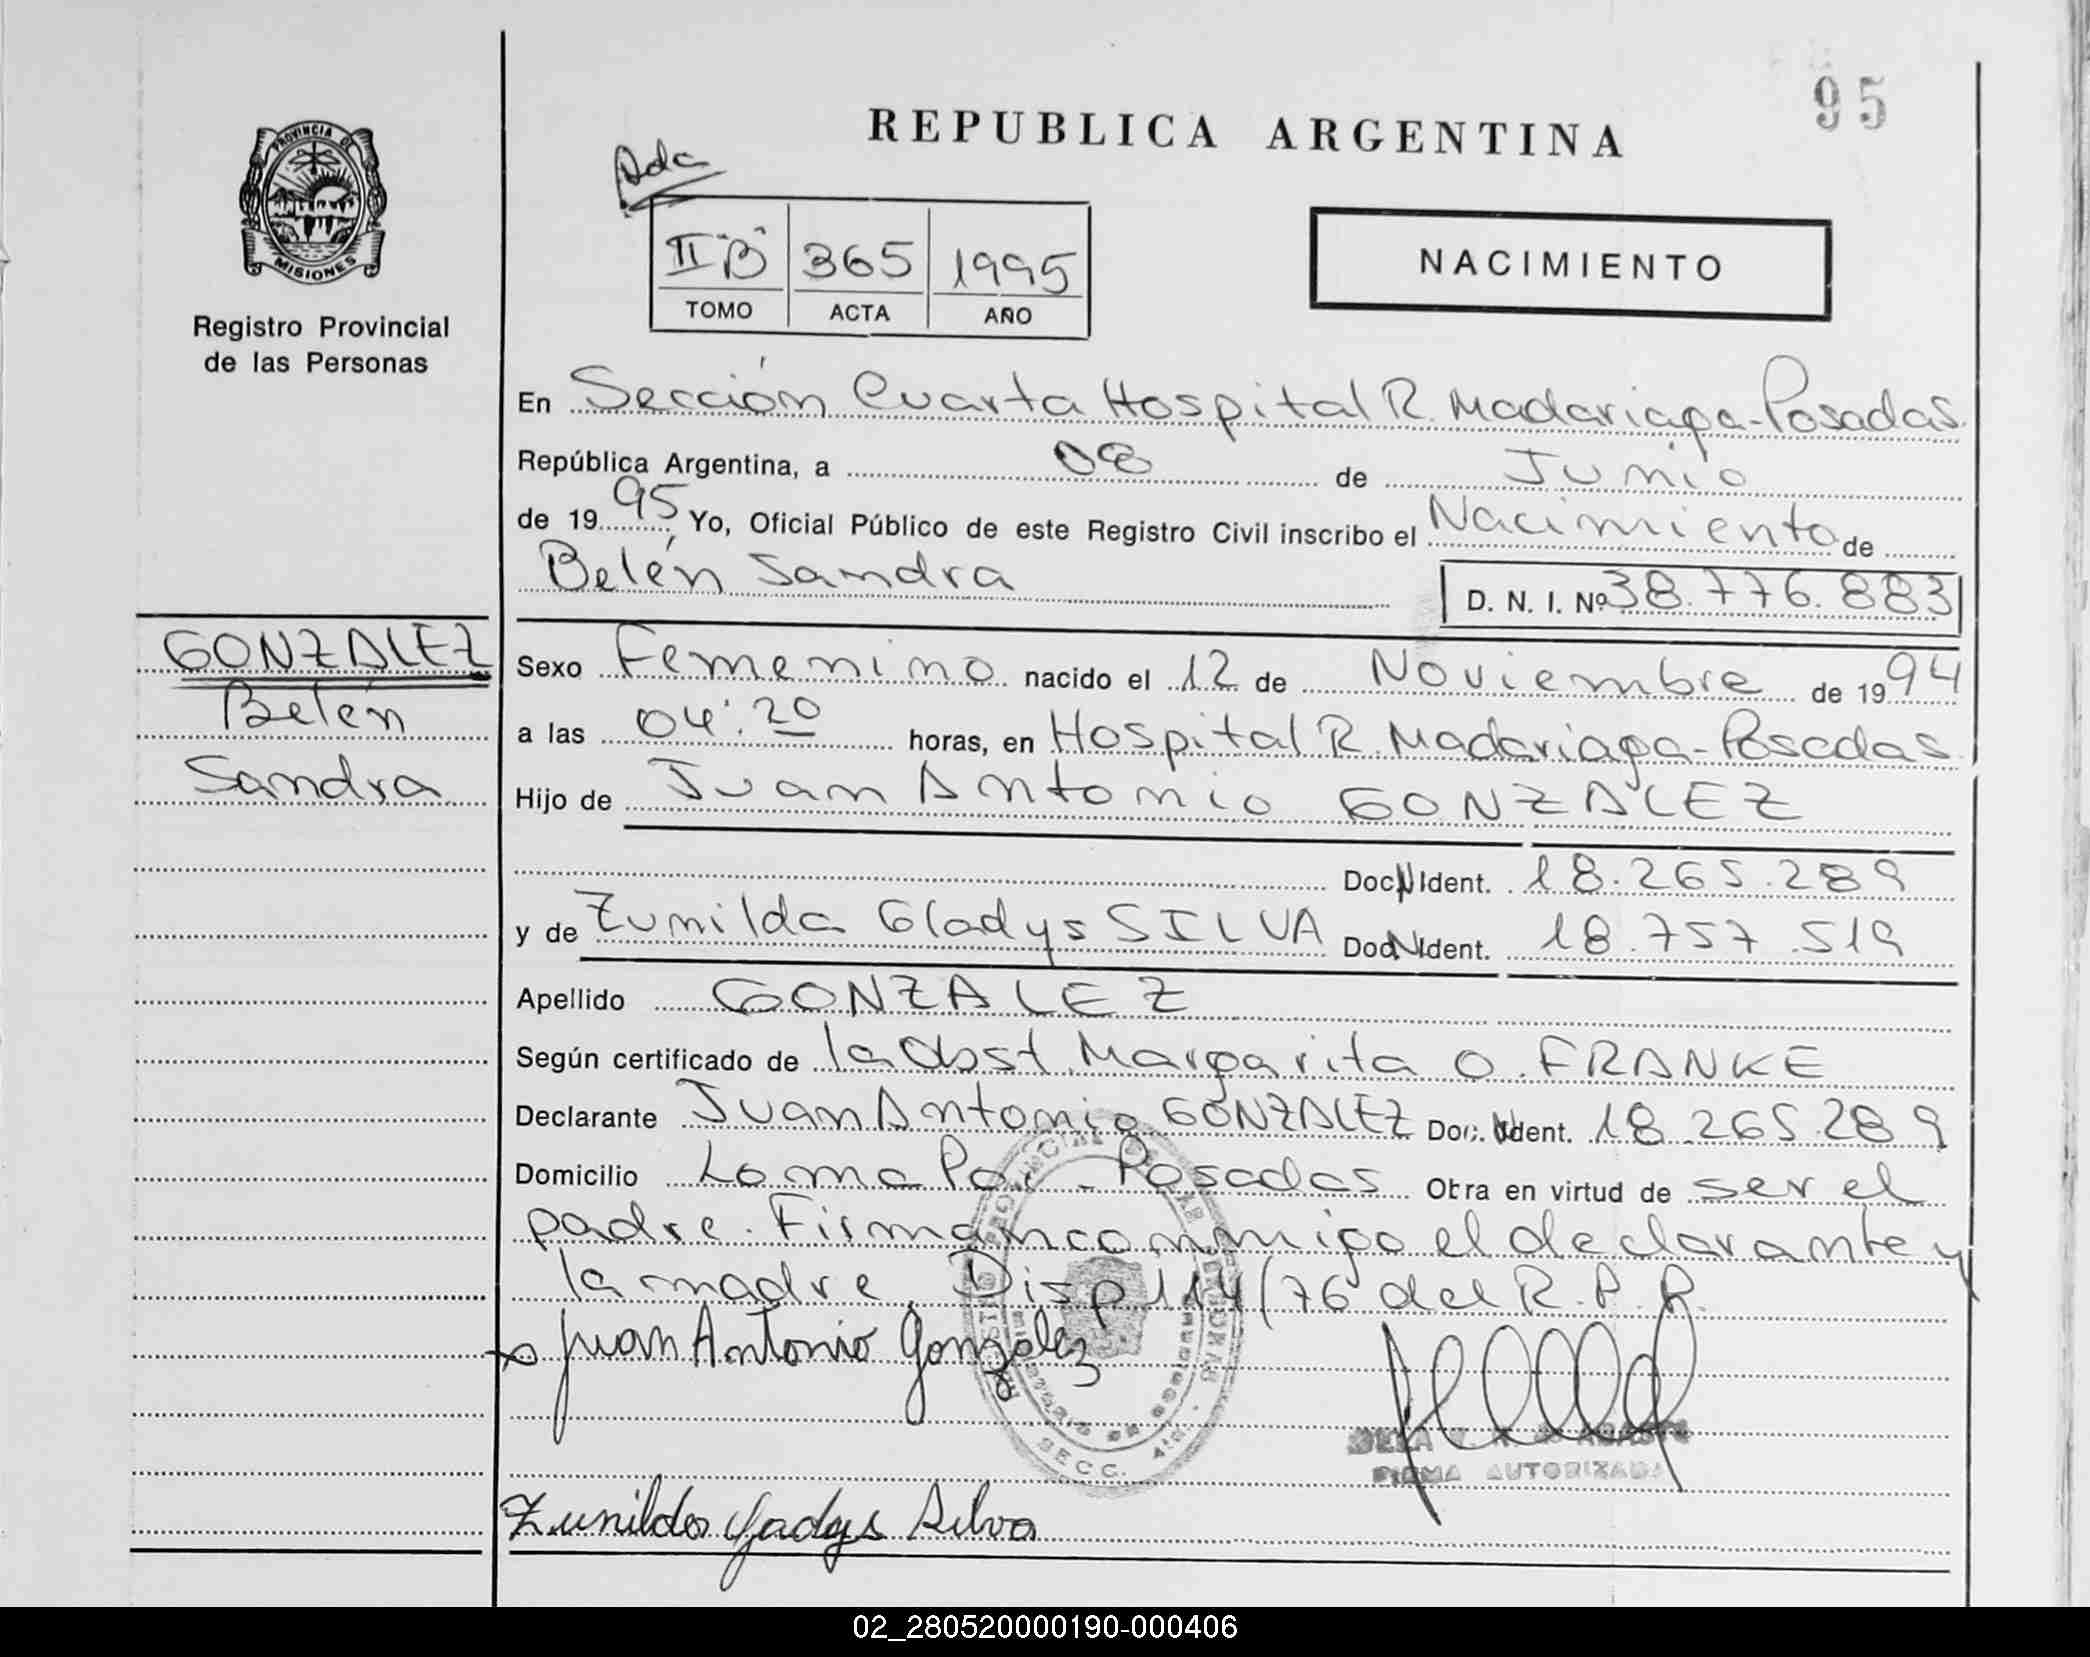 95
REPUBLICA ARGENTINA
PROVINCIA DE
MISIONES
Registro Provincial
de las Personas
II "B" 365 1995
TOMO ACTA AÑO
NACIMIENTO
En Sección Cuarta Hospital R. Madariaga-Posadas
República Argentina, a 08 de Junio
de 19 95, Yo, Oficial Público de este Registro Civil inscribo el Nacimiento de
Belén Sandra D. N. I. Nº 38.776.883
GONZALEZ
Belén
Sandra
Sexo Femenino nacido el 12 de Noviembre de 19 94
a las 04:20 horas, en Hospital R. Madariaga-Posadas
Hijo de Juan Antonio GONZALEZ
Doc. N Ident. 18.265.289
y de Zunilda Gladys SILVA Doc. N Ident. 18.757.519
Apellido GONZALEZ
Según certificado de la Obst. Margarita O. FRANKE
Declarante Juan Antonio GONZALEZ Doc. N Ident. 18.265.289
Domicilio Loma Poi - Posadas Obra en virtud de ser el
padre. Firman conmigo el declarante y
la madre. Disp 114/76 del R.P.P.
Juan Antonio Gonzalez
FIRMA AUTORIZADA
SECC. 4ta.
Zunilda Gladys Silva
02_280520000190-000406